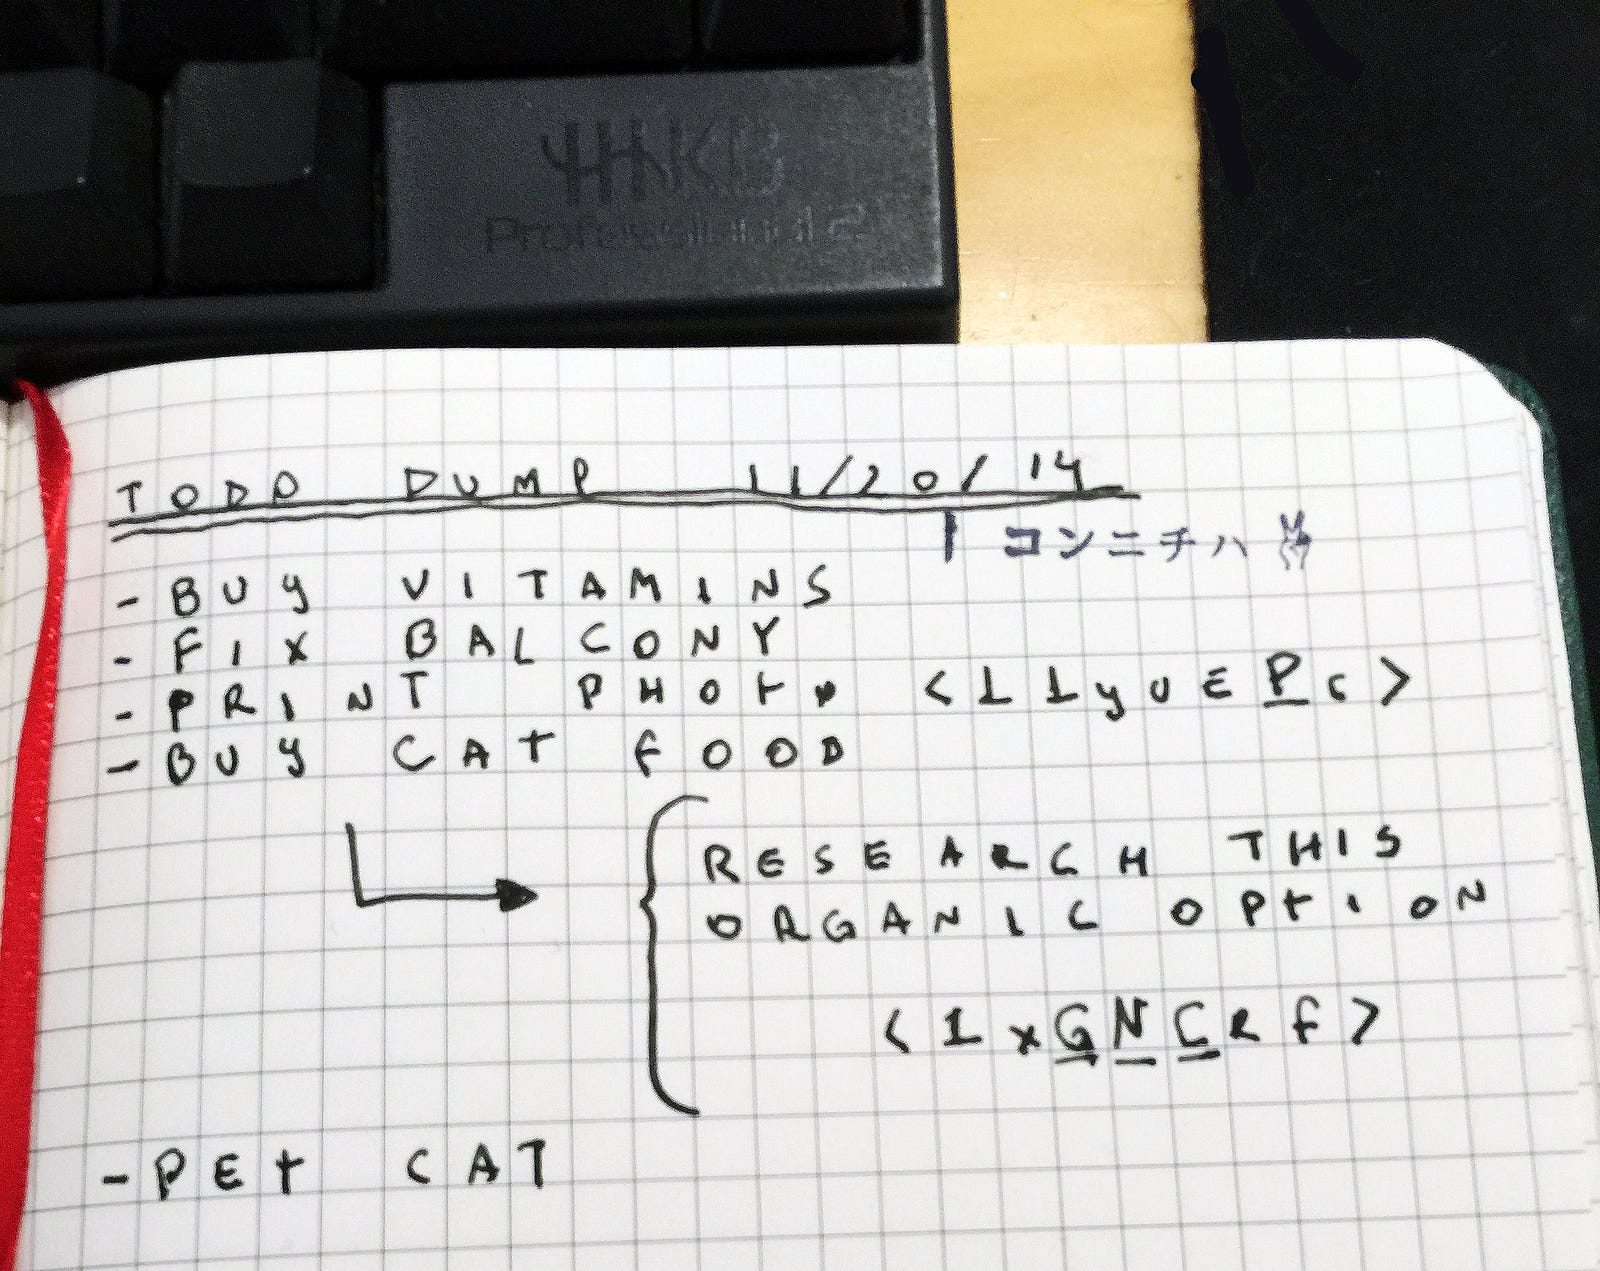 HHKB
Professional 2
TODO DUMP 11/20/14
コンニチハ
- BUY VITAMINS
- FIX BALCONY
- PRINT PHOTO <11yUEPc>
- BUY CAT FOOD
RESEARCH THIS
ORGANIC OPTION
<1xGNCRf>
- PET CAT